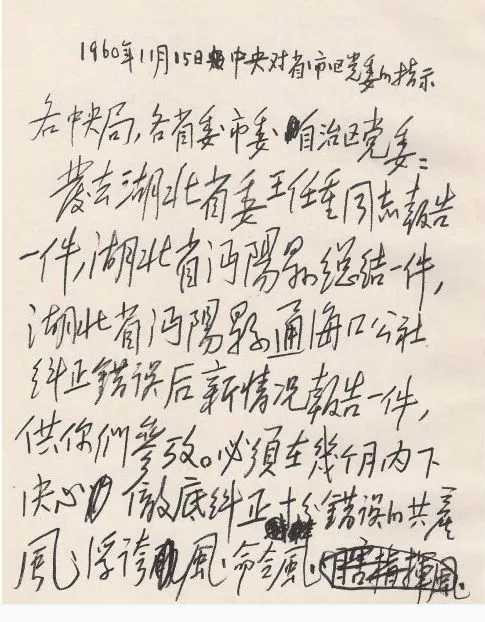 1960年11月15日中央对省市区党委的指示
各中央局,各省委市委自治区党委:
發去湖北省委王任重同志報告
一件,湖北省沔陽县总结一件,
湖北省沔陽县通海口公社
纠正錯误后新情况報告一件,
供你們參攷。必須在幾个月内下
决心徹底纠正十分錯误的共産
風、浮誇風、命令風、